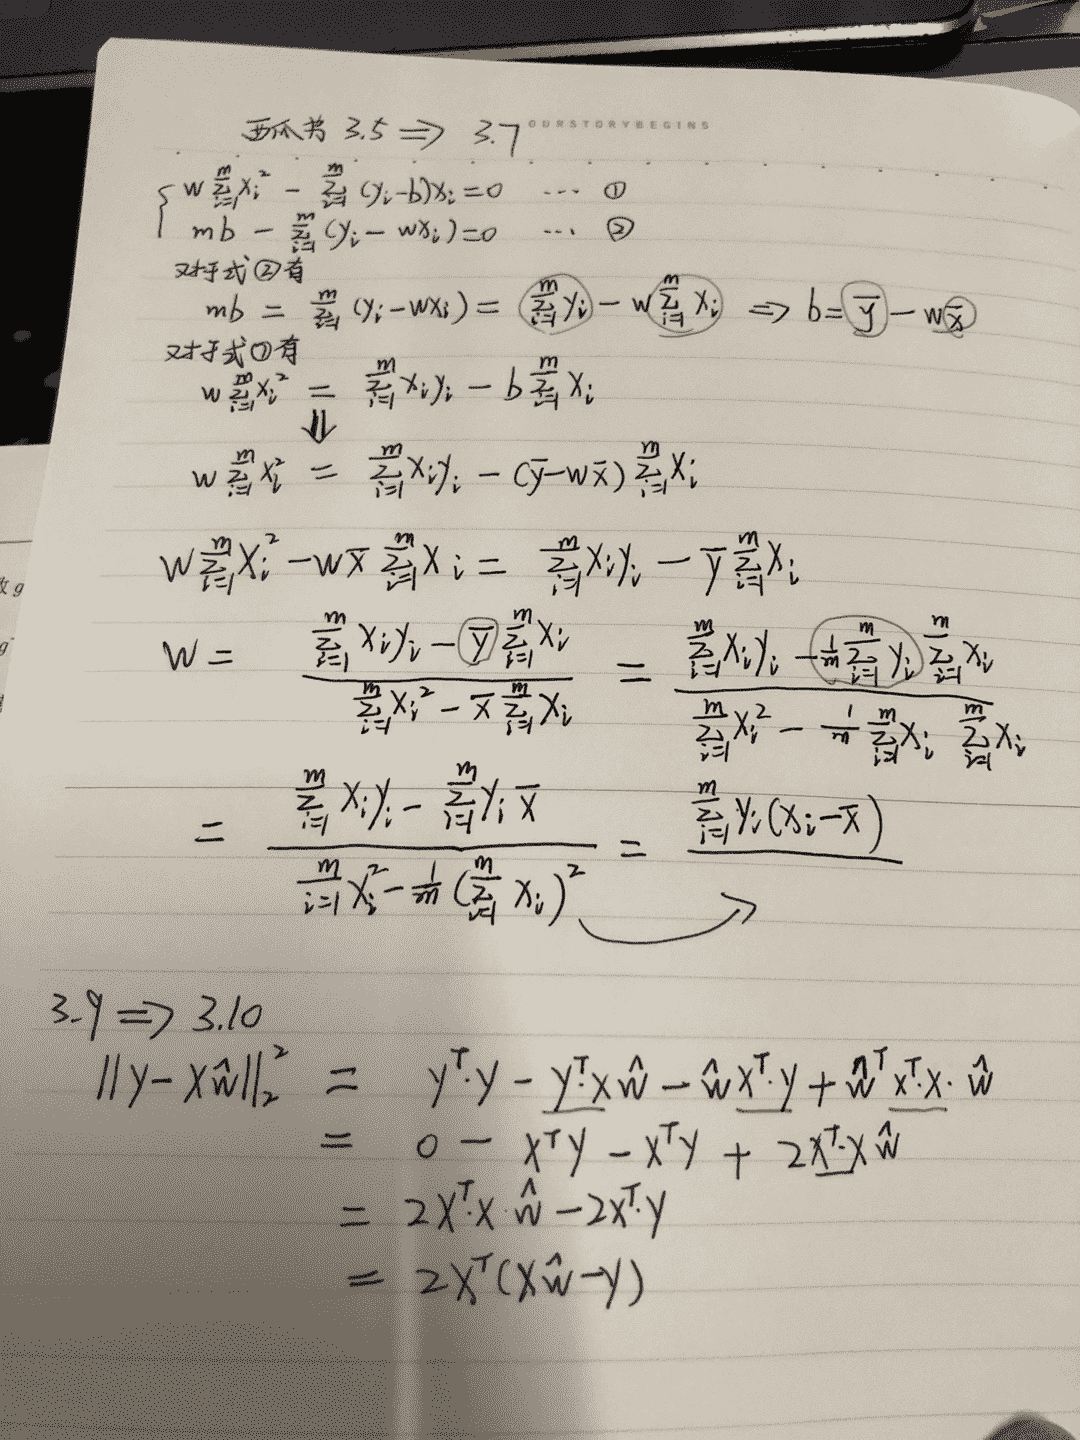 西瓜书 3.5 ⟹ 3.7 OURSTORYBEGINS
{ w∑_{i=1}^{m} x_i^2 − ∑_{i=1}^{m} (y_i−b)x_i = 0 … ①
mb − ∑_{i=1}^{m} (y_i − wx_i) = 0 … ②
对于式②有
mb = ∑_{i=1}^{m} (y_i−wx_i) = ∑_{i=1}^{m} y_i − w∑_{i=1}^{m} x_i ⟹ b = ȳ − wx̄
对于式①有
w∑_{i=1}^{m} x_i^2 = ∑_{i=1}^{m} x_i y_i − b∑_{i=1}^{m} x_i
⇓
w∑_{i=1}^{m} x_i^2 = ∑_{i=1}^{m} x_i y_i − (ȳ−wx̄)∑_{i=1}^{m} x_i
w∑_{i=1}^{m} x_i^2 − wx̄∑_{i=1}^{m} x_i = ∑_{i=1}^{m} x_i y_i − ȳ∑_{i=1}^{m} x_i
w = (∑_{i=1}^{m} x_i y_i − ȳ∑_{i=1}^{m} x_i) / (∑_{i=1}^{m} x_i^2 − x̄∑_{i=1}^{m} x_i) = (∑_{i=1}^{m} x_i y_i − 1/m ∑_{i=1}^{m} y_i ∑_{i=1}^{m} x_i) / (∑_{i=1}^{m} x_i^2 − 1/m ∑_{i=1}^{m} x_i ∑_{i=1}^{m} x_i)
= (∑_{i=1}^{m} x_i y_i − ∑_{i=1}^{m} y_i x̄) / (_{i=1}^{m} x_i^2 − 1/m (∑_{i=1}^{m} x_i)^2) = ∑_{i=1}^{m} y_i(x_i−x̄) /
3.9 ⟹ 3.10
||y − Xŵ||_2^2 = y^T·y − y^T·xŵ − ŵx^T·y + ŵ^T x^T·x·ŵ
= 0 − x^T y − x^T y + 2x^T·xŵ
= 2x^T·x·ŵ − 2x^T·y
= 2x^T(xŵ−y)
g
g